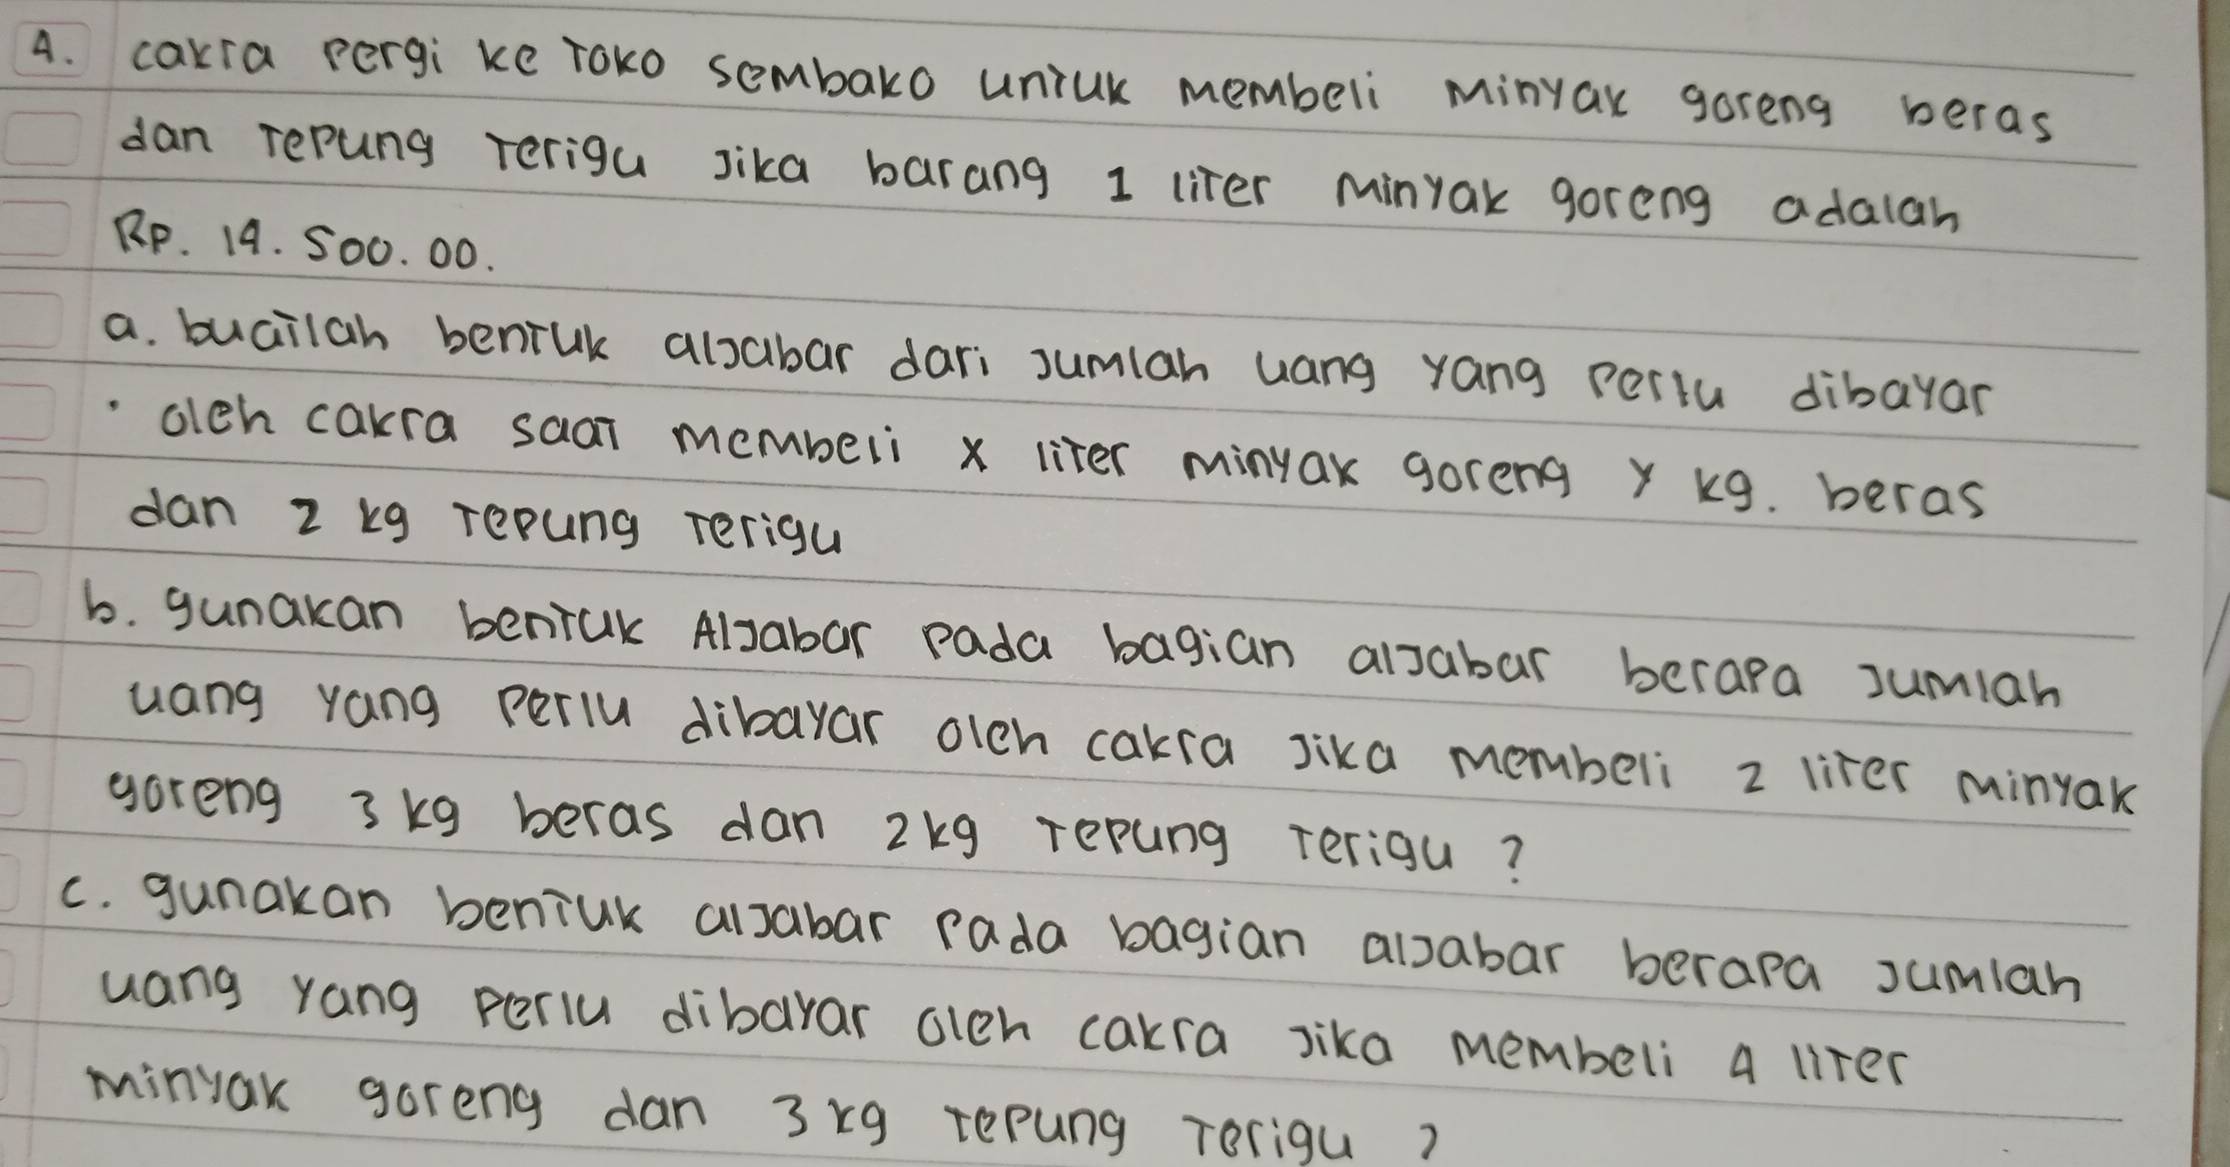 4. cakra pergi ke Toko sembako untuk membeli minyak goreng beras
dan Tepung Terigu Jika barang 1 liter minyak goreng adalah
RP. 14.500.00.
a. buatlah bentuk aljabar dari Jumlah uang yang perlu dibayar
oleh cakra saat membeli x liter minyak goreng y kg. beras
dan 2 kg Tepung Terigu
b. gunakan bentuk Aljabar pada bagian aljabar berapa Jumlah
uang yang perlu dibayar oleh cakra Jika membeli 2 liter minyak
goreng 3 kg beras dan 2kg Tepung Terigu ?
c. gunakan bentuk aljabar pada bagian aljabar berapa Jumlah
uang yang perlu dibayar oleh cakra Jika membeli 4 liter
minyak goreng dan 3 kg Tepung Terigu ?